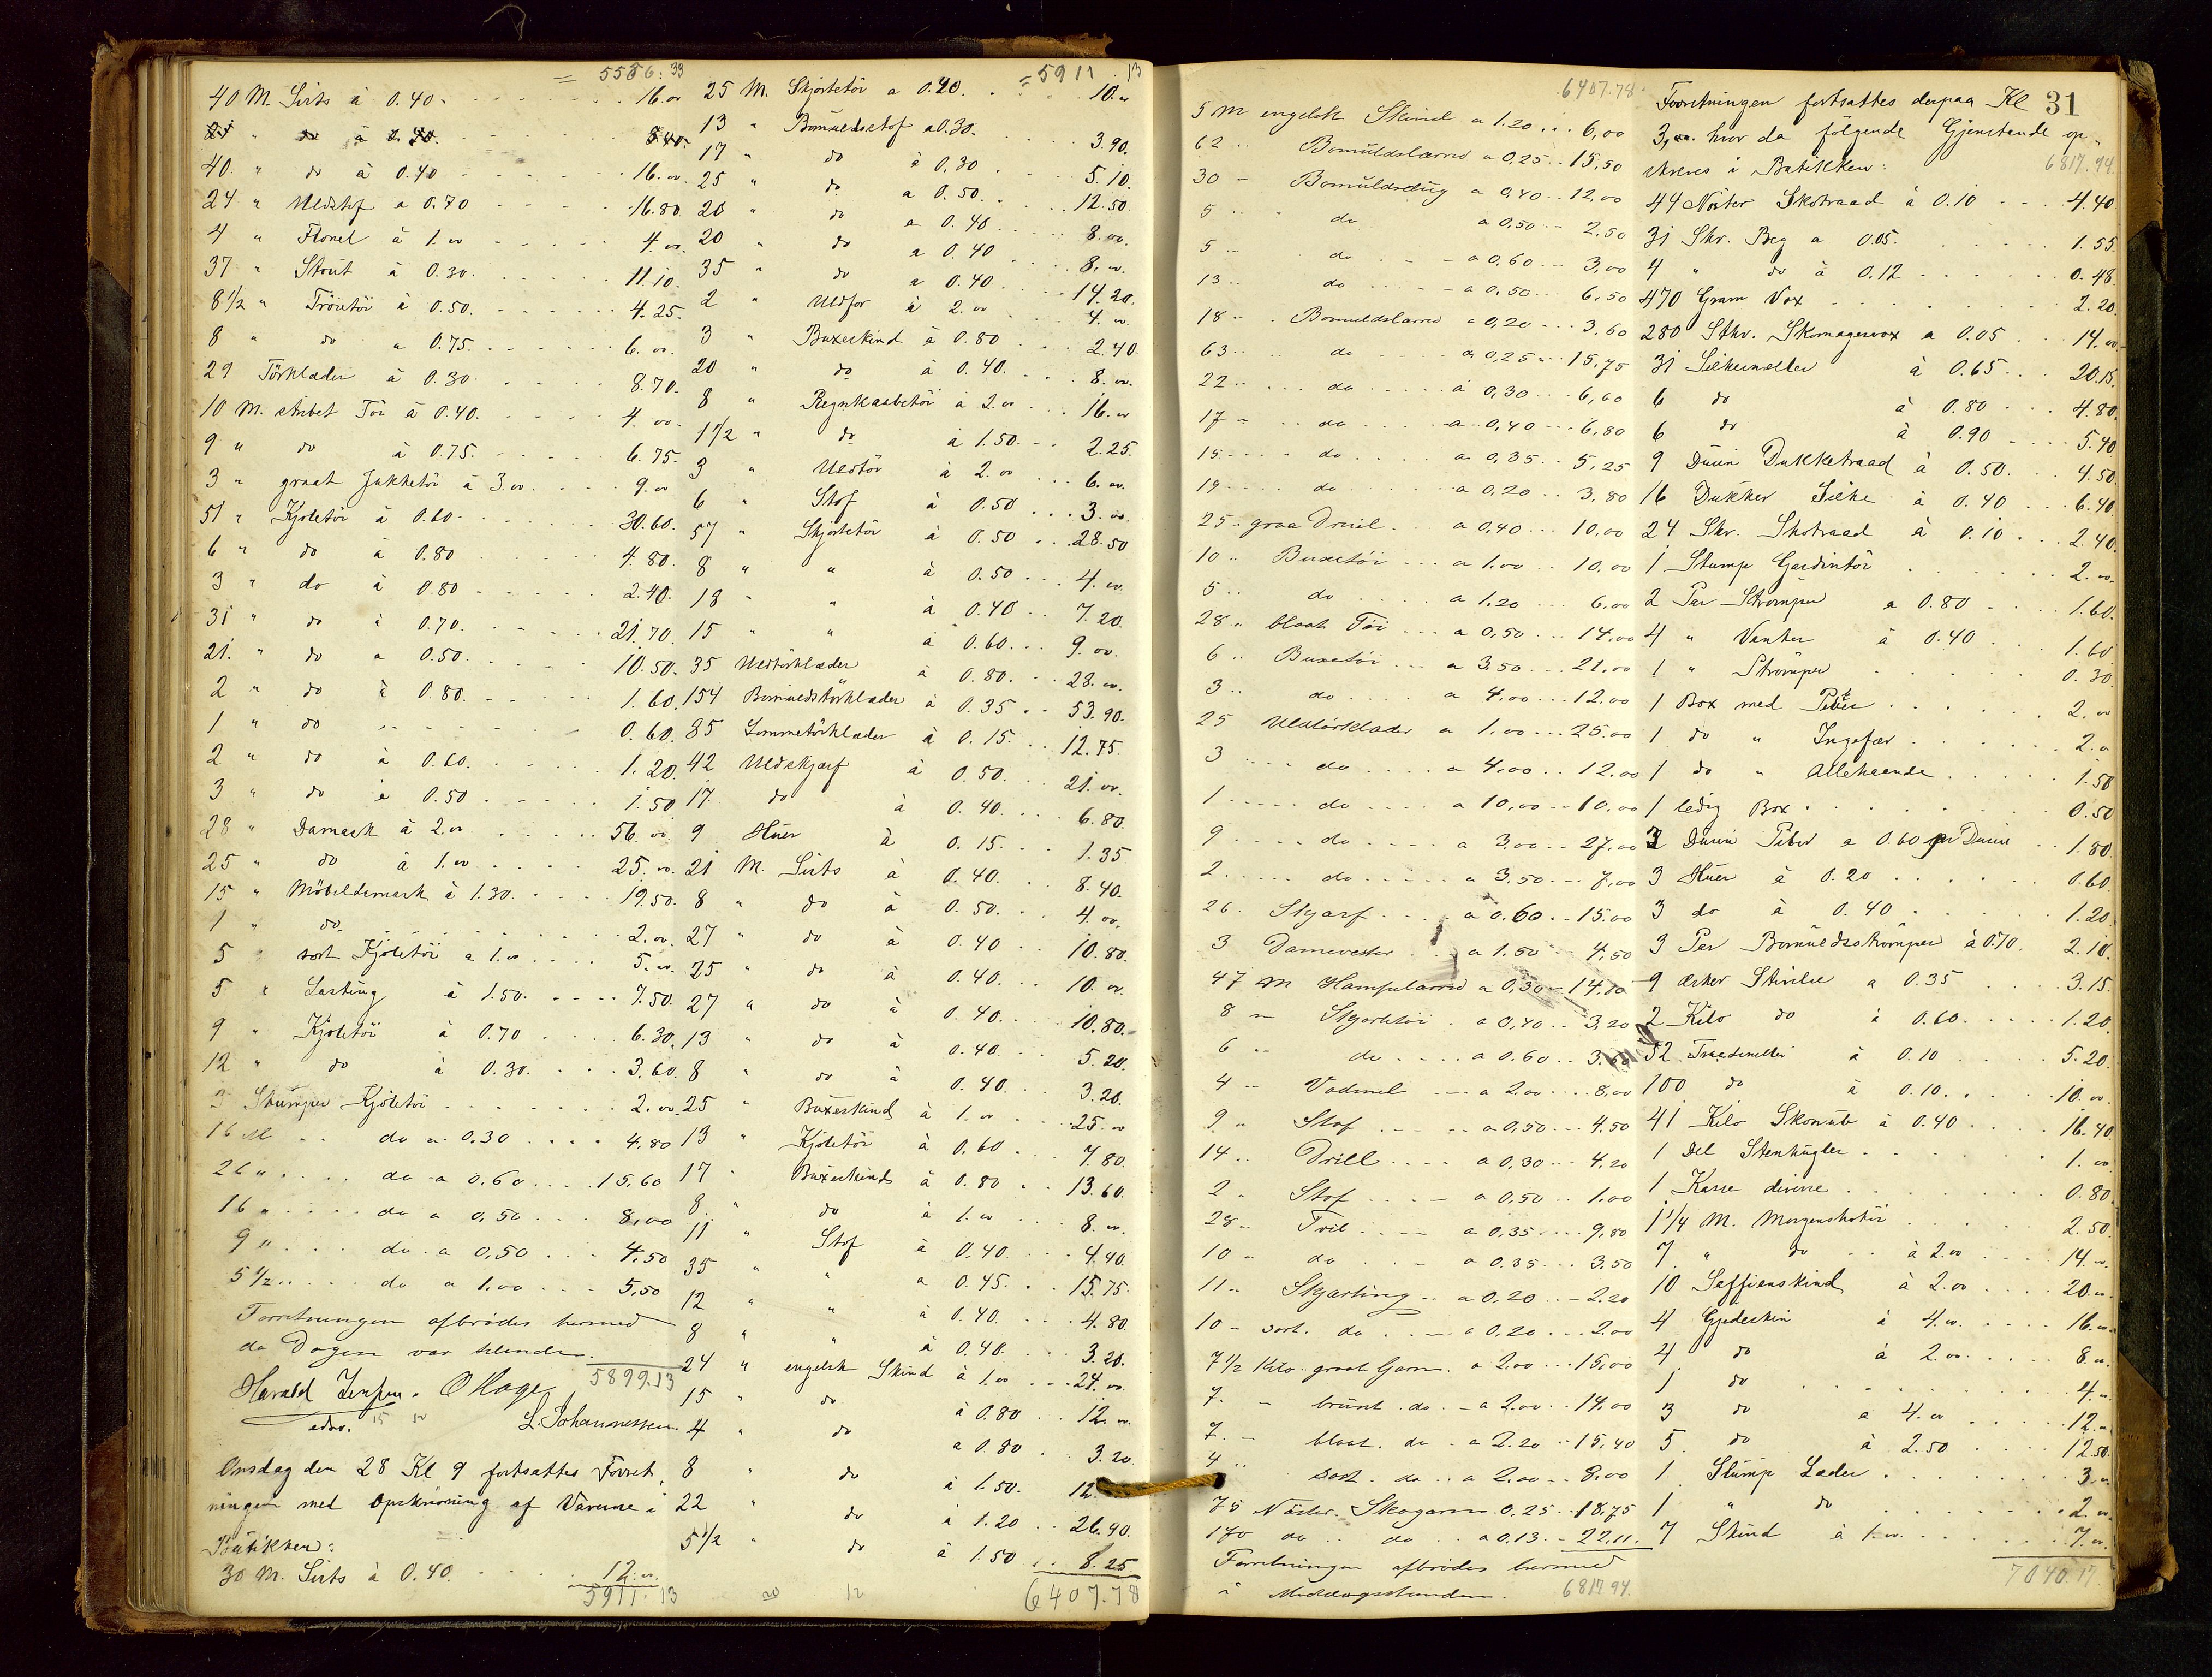 = 5556.33
40 M. Sirts à 0.40. 16.00
21 " do à 0.40. 8.40.
40. " do à 0.40 16.00.
24 " Uldstof a 0.70 16.80.
4 " Flonel à 1.00 4.00.
37 " Stout à 0.30. 11.10.
8 1/2 " Tröietöi à 0.50. 4.25.
8 " do a 0.75. 6.00.
29 Törklæder à 0.30. 8.70.
10 M. stribet Töi à 0.40. 4.00.
9 " do à 0.75. 6.75.
3 " graat Jakketöi à 3.00. 9.00
51 " Kjoletöi à 0.60. 30.60.
6 " do à 0.80 4.80.
3 " do à 0.80 2.40.
31 " do à 0.70. 21.70.
21. " do a 0.50. 10.50.
2 " do à 0.80. 1.60.
1 " do 0.60.
2 " do à 0.60. 1.20.
3 " do à 0.50 1.50
28 " Damask à 2.00 56.00
25 " do à 1.00 25.00.
15 " Möbeldamask à 1.30. 19.50.
1 " do 2.00.
5 " sort Kjoletöi a 1.00 5.00
5 " Lasting à 1.50. 7.50.
9 " Kjoletöi à 0.70 6.30.
12 " do à 0.30. 3.60.
3 Stumper Kjoletöi 2.00.
16 M do a 0.30 4.80
26 " do a 0.60 15.60
16 " do a 0,50 8,00
9 " do a 0,50 4,50
5 1/2 " do a 1.00 5,50
Forretningen afbrödes hermed
da Dagen var tilende.
5899.13
Harald Jensen. O Hage
edsv. L. Johannessen.
Onsdag den 28 Kl 9 fortsattes Forret,
ningen med Opskrivning af Varerne i
Butikken:
30 M. Sirts à 0.40. 12.00.
5911.13
= 5911.13
25 M. Skjortetöi a 0.40. 10.00
13 " Bomuldsstof a 0.30. 3.90.
17 " do à 0.30 5.10.
25 " do a 0.50. 12.50.
20 " do a 0.40 8.00.
20 " do a 0.40 8.00.
35 " do a 0.40. 14.20.
2 " Uldfor à 2.00 4.00.
3 " Buxeskind à 0.80 2.40.
20 " do à 0.40. 8.00.
8 " Regnkaabetöi à 2.00 16.00
1 1/2 " do à 1.50. 2.25.
3 " Uldtöi à 2.00 6.00.
6 " Stof à 0.50 3.00.
57 " Skjortetöi à 0.50 28.50
8 " " à 0.50 4.00.
18 " " à 0.40 7.20.
15 " " à 0.60. 9.00.
35 Uldtörklæder à 0.80. 28.00.
154 Bomuldstörklæder à 0.35 53.90.
85 Lommetörklæder à 0.15. 12.75.
42 Uldskjærf à 0.50. 21.00.
17 do à 0.40. 6.80.
9 Huer à 0.15. 1.35
21 M. Sirts à 0.40. 8.40.
8 " do à 0.50. 4.00.
27 " do à 0.40 10.80.
25 " do à 0.40. 10.00.
27 " do à 0.40. 10.80.
13 " do à 0.40. 5.20.
8 " do à 0.40. 3.20.
25 " Buxeskind à 1.00 25.00
13 " Kjoletöi à 0.60 7.80.
17 " Buxeskind à 0.80 13.60.
8 " do à 1.00 8.00.
11 " Stof à 0.40. 4.40.
35 " " a 0.45. 15.75.
12 " " à 0.40. 4.80.
8 " " à 0.40. 3.20.
24 " engelsk Skind à 1.00 24.00.
15 " do à 0.80 12.00.
4 " do a 0.80 3.20.
8 " do à 1.50. 12
22 " do à 1.20 26.40.
5 1/2 " do à 1.50 8.25
6407.78
6407.78
5 M engelsk Skind a 1.20 6,00
62 " Bomuldslærred a 0,25 15,50
30 " Bomuldsdug a 0,40 12,00
5 " do a 0,50 2,50
5 " do a 0,60 3,00
13 " do a 0,50 6,50
18 " Bomuldslærred a 0,20 3.60
63 " do a 0,25 15,75
22 " do a 0,30 6,60
17 " do a 0,40 6,80
15 " do a 0,35 5,25
19 " do a 0,20 3.80
25 " graa Dreil a 0,40 10,00
10 " Buxetöi a 1.00 10,00
5 " do a 1,20 6,00
28 " blaat Töi a 0,50 14,00
6 " Buxetöi a 3,50 21,00
3 " do a 4,00 12,00
25 Uldtörklæder a 1,00 25,00
3 do a 4,00 12,00
1 do a 10,00 10,00
9 do a 3,00 27,00
2 do a 3,50 7,00
26. Skjærf a 0.60 15.00
3 Damevester a 1.50 4,50
47 m Hampelærred a 0,30 14.10
8 " Skjortetöi a 0,40 3,20
6 " do a 0.60 3.60
4 " Vadmel a 2,00 8,00
9 " Stof a 0,50 4.50
14 " Drill a 0,30 4.20
2 " Stof a 0,50 1,00
28 " Tvil a 0,35 9,80
10 " do a 0,35 3.50
11 " Skjærting a 0,20 2.20
10 " sort. do a 0,20 2,00
7 1/2 Kilo graat Garn a 2,00 15,00
7. " brunt do. a 2,00 14,00
7. " blaat do. a 2.20 15,40
4 " sort. do a 2,00 8,00
75 Nöster. Skogarn 0,25 18,75
170 do do a 0.13 22,11.
Forretningen afbrödes hermed
i Middagsstunden. 6817.94.
31
Forretningen fortsattes derpaa Kl
3,00. hvor da følgende Gjenstande op,
skreves i Butikken: 6817.94.
44 Nöster Skotraad à 0.10 4.40.
31 Skr. Beg a 0.05. 1.55.
4 " do à 0.12 0.48
470 Gram Vox 2.20.
280 Stkr. Skomagervox a 0.05 14.00.
31 Silkesneller à 0.65 20.15.
6 do à 0.80 4.80.
6 do à 0.90 5.40
9 Dusin Dukketraad à 0.50. 4.50.
16 Dukker Silke à 0.40 6.40.
24 Skr. Skotraad à 0.10 2.40.
1 Stump Gardintöi 2.00.
2 Par Strömper a 0.80 1.60.
4 " Vanter à 0.40 1.60
1 " Strömper 0.30.
1 Box med Peber 2.00
1 do " Ingefær 2.00
1 do " Allehaande 1.50
1 ledig Box 0.50
3 Dusin Piber a 0.60 pr Dusin 1.80.
3 Huer à 0.20 0.60
3 do à 0.40 1.20
3 Par Bomuldsströmper à 0.70. 2.10.
9 Æsker Stivelse a 0.35 3.15.
2 Kilo do à 0.60. 1.20.
52 Traadsneller à 0.10 5.20
100 do à 0.10. 10.00.
41 Kilo Skonub à 0.40 16.40.
1 Del Stenkugler 1.00.
1 Kasse diverse 0.80.
1 1/4 M. Morgenskotöi 2.50.
7. " do à 2.00 14.00.
10 Saffianskind à 2.00 20.00.
4 Gjedeskin à 4.00. 16.00.
4 do à 2.00. 8.00
1 do 4.00
3 do a 4.00 12.00
5 do à 2.50 12.50.
1 Stump Læder 3.00
1 " do 2.00
7 Skind à 1.00. 7.00.
7040.17.